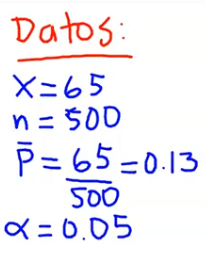 Datos:
X=65
n=500
P̄=65/500=0.13
α=0.05